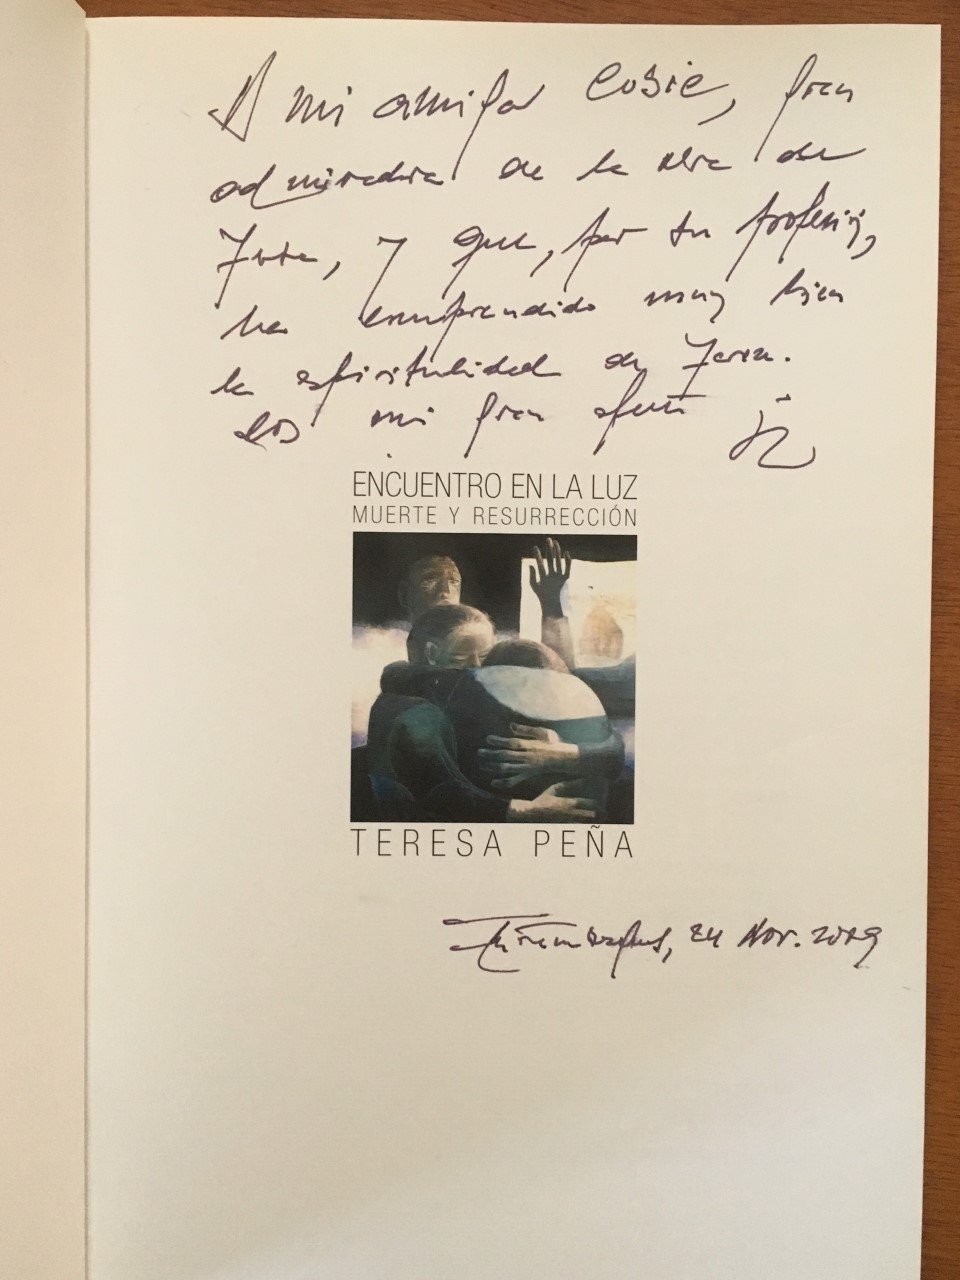 A mi amiga, gran
admiradora de la obra de
y que, por su profesión,
ha comprendido muy bien
la espiritualidad de Teresa.
Con mi gran afecto
ENCUENTRO EN LA LUZ
MUERTE Y RESURRECCIÓN
TERESA PEÑA
24 Nov. 2019